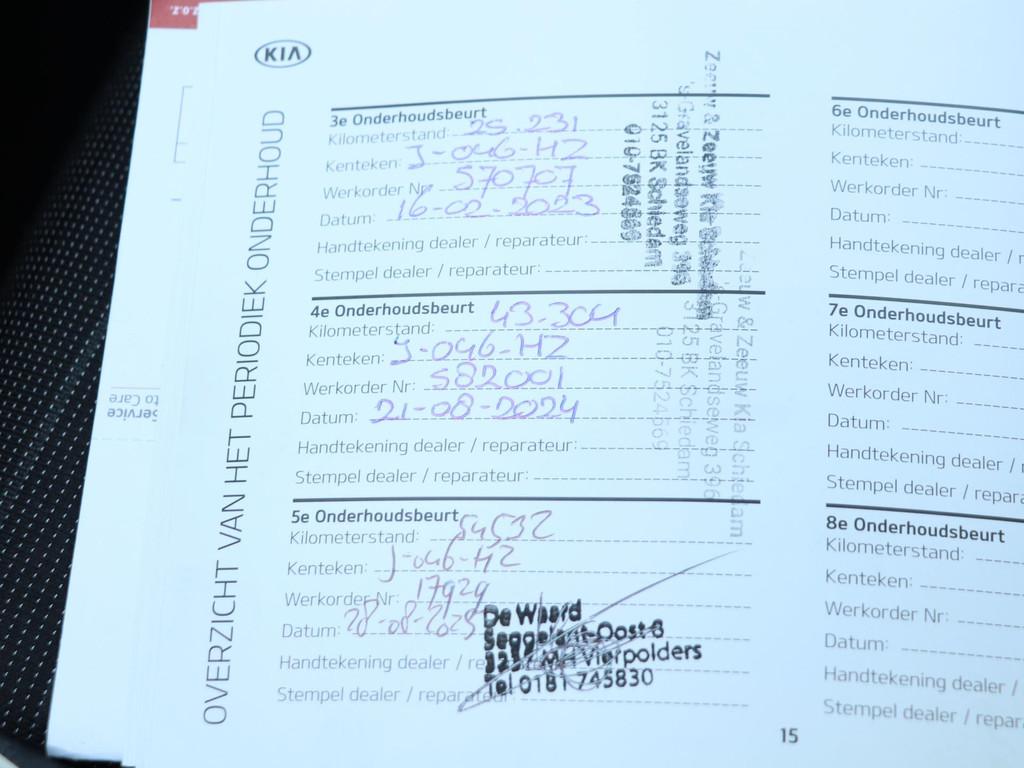 KIA
OVERZICHT VAN HET PERIODIEK ONDERHOUD
3e Onderhoudsbeurt
Kilometerstand: 25.231
Kenteken: J-046-HZ
Werkorder Nr: 570707
Datum: 16-02-2023
Handtekening dealer / reparateur:
Stempel dealer / reparateur:
Zeeuw & Zeeuw Kia Schiedam
's-Gravelandseweg 396
3125 BK Schiedam
010-7524669
4e Onderhoudsbeurt
Kilometerstand: 43.304
Kenteken: J-046-HZ
Werkorder Nr: 582001
Datum: 21-08-2024
Handtekening dealer / reparateur:
Stempel dealer / reparateur:
Zeeuw & Zeeuw Kia Schiedam
's-Gravelandseweg 396
3125 BK Schiedam
010-7524669
5e Onderhoudsbeurt
Kilometerstand: 54532
Kenteken: J-046-HZ
Werkorder Nr: 17929
Datum: 28-08-2025
Handtekening dealer / re
Stempel dealer / reparateur:
De Waard
Seggelant-Oost 8
Vierpolders
Tel 0181 745830
6e Onderhoudsbeurt
Kilometerstand:
Kenteken:
Werkorder Nr:
Datum:
Handtekening dealer / r
Stempel dealer / repara
7e Onderhoudsbeurt
Kilometerstand:
Kenteken:
Werkorder Nr:
Datum:
Handtekening dealer / r
Stempel dealer / repara
8e Onderhoudsbeurt
Kilometerstand:
Kenteken:
Werkorder Nr:
Datum:
Handtekening dealer /
Stempel dealer / repar
15
service
to Care